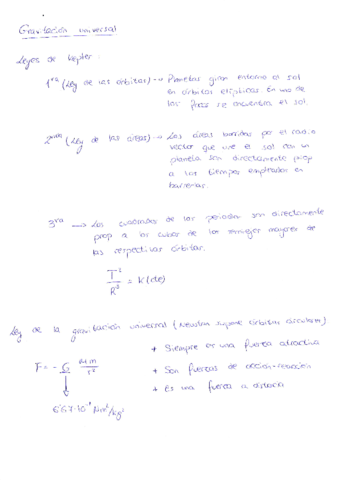 Gravitación universal
Leyes de Kepler:
1era (Ley de las órbitas) → Planetas giran entorno al sol
en órbitas elípticas en uno de
los focos se encuentra el sol.
2nda (Ley de las áreas) → Las áreas barridas por el radio
vector que une el sol con un
planeta son directamente prop
a los tiempos empleados en
barrerlas.
3ra → Los cuadrados de los periodos son directamente
prop a los cubos de los semiejes mayores de
las respectivas órbitas.
T²/R³ = K (cte)
Ley de la gravitación universal (Newton supone órbitas circulares)
+ Siempre es una fuerza atractiva
F = - G M·m/r²
+ Son fuerzas de acción-reacción
+ Es una fuerza a distancia
6'67·10⁻¹¹ Nm²/kg²